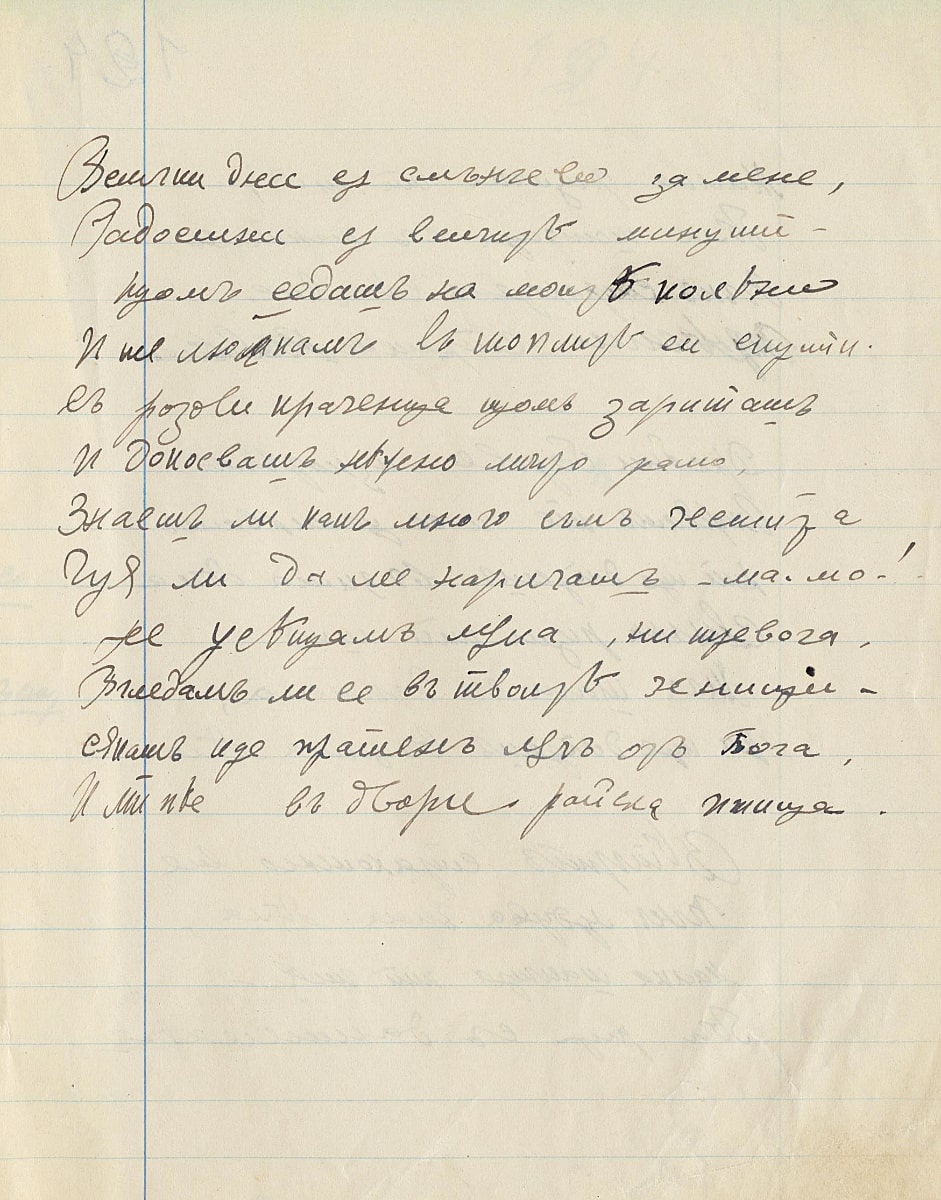 Всички дни са слънчеви за мене,
Радостни са всичкитѣ минути –
щомъ седашъ на моитѣ колѣне
И те люшкамъ въ топлитѣ си скути.
Съ розови краченца щомъ зариташъ
И докосвашъ нѣжно мойто рамо,
Знаешъ ли какъ много съмъ честита
Чуя ли да ме наричашъ – ма-мо!
Не усѣщамъ мѫка, ни тревога,
Вгледамъ ли се въ твоитѣ зеници –
сѣкашъ иде пратенъ лѫчъ отъ Бога,
И ми пѣе въ двори райска птица.